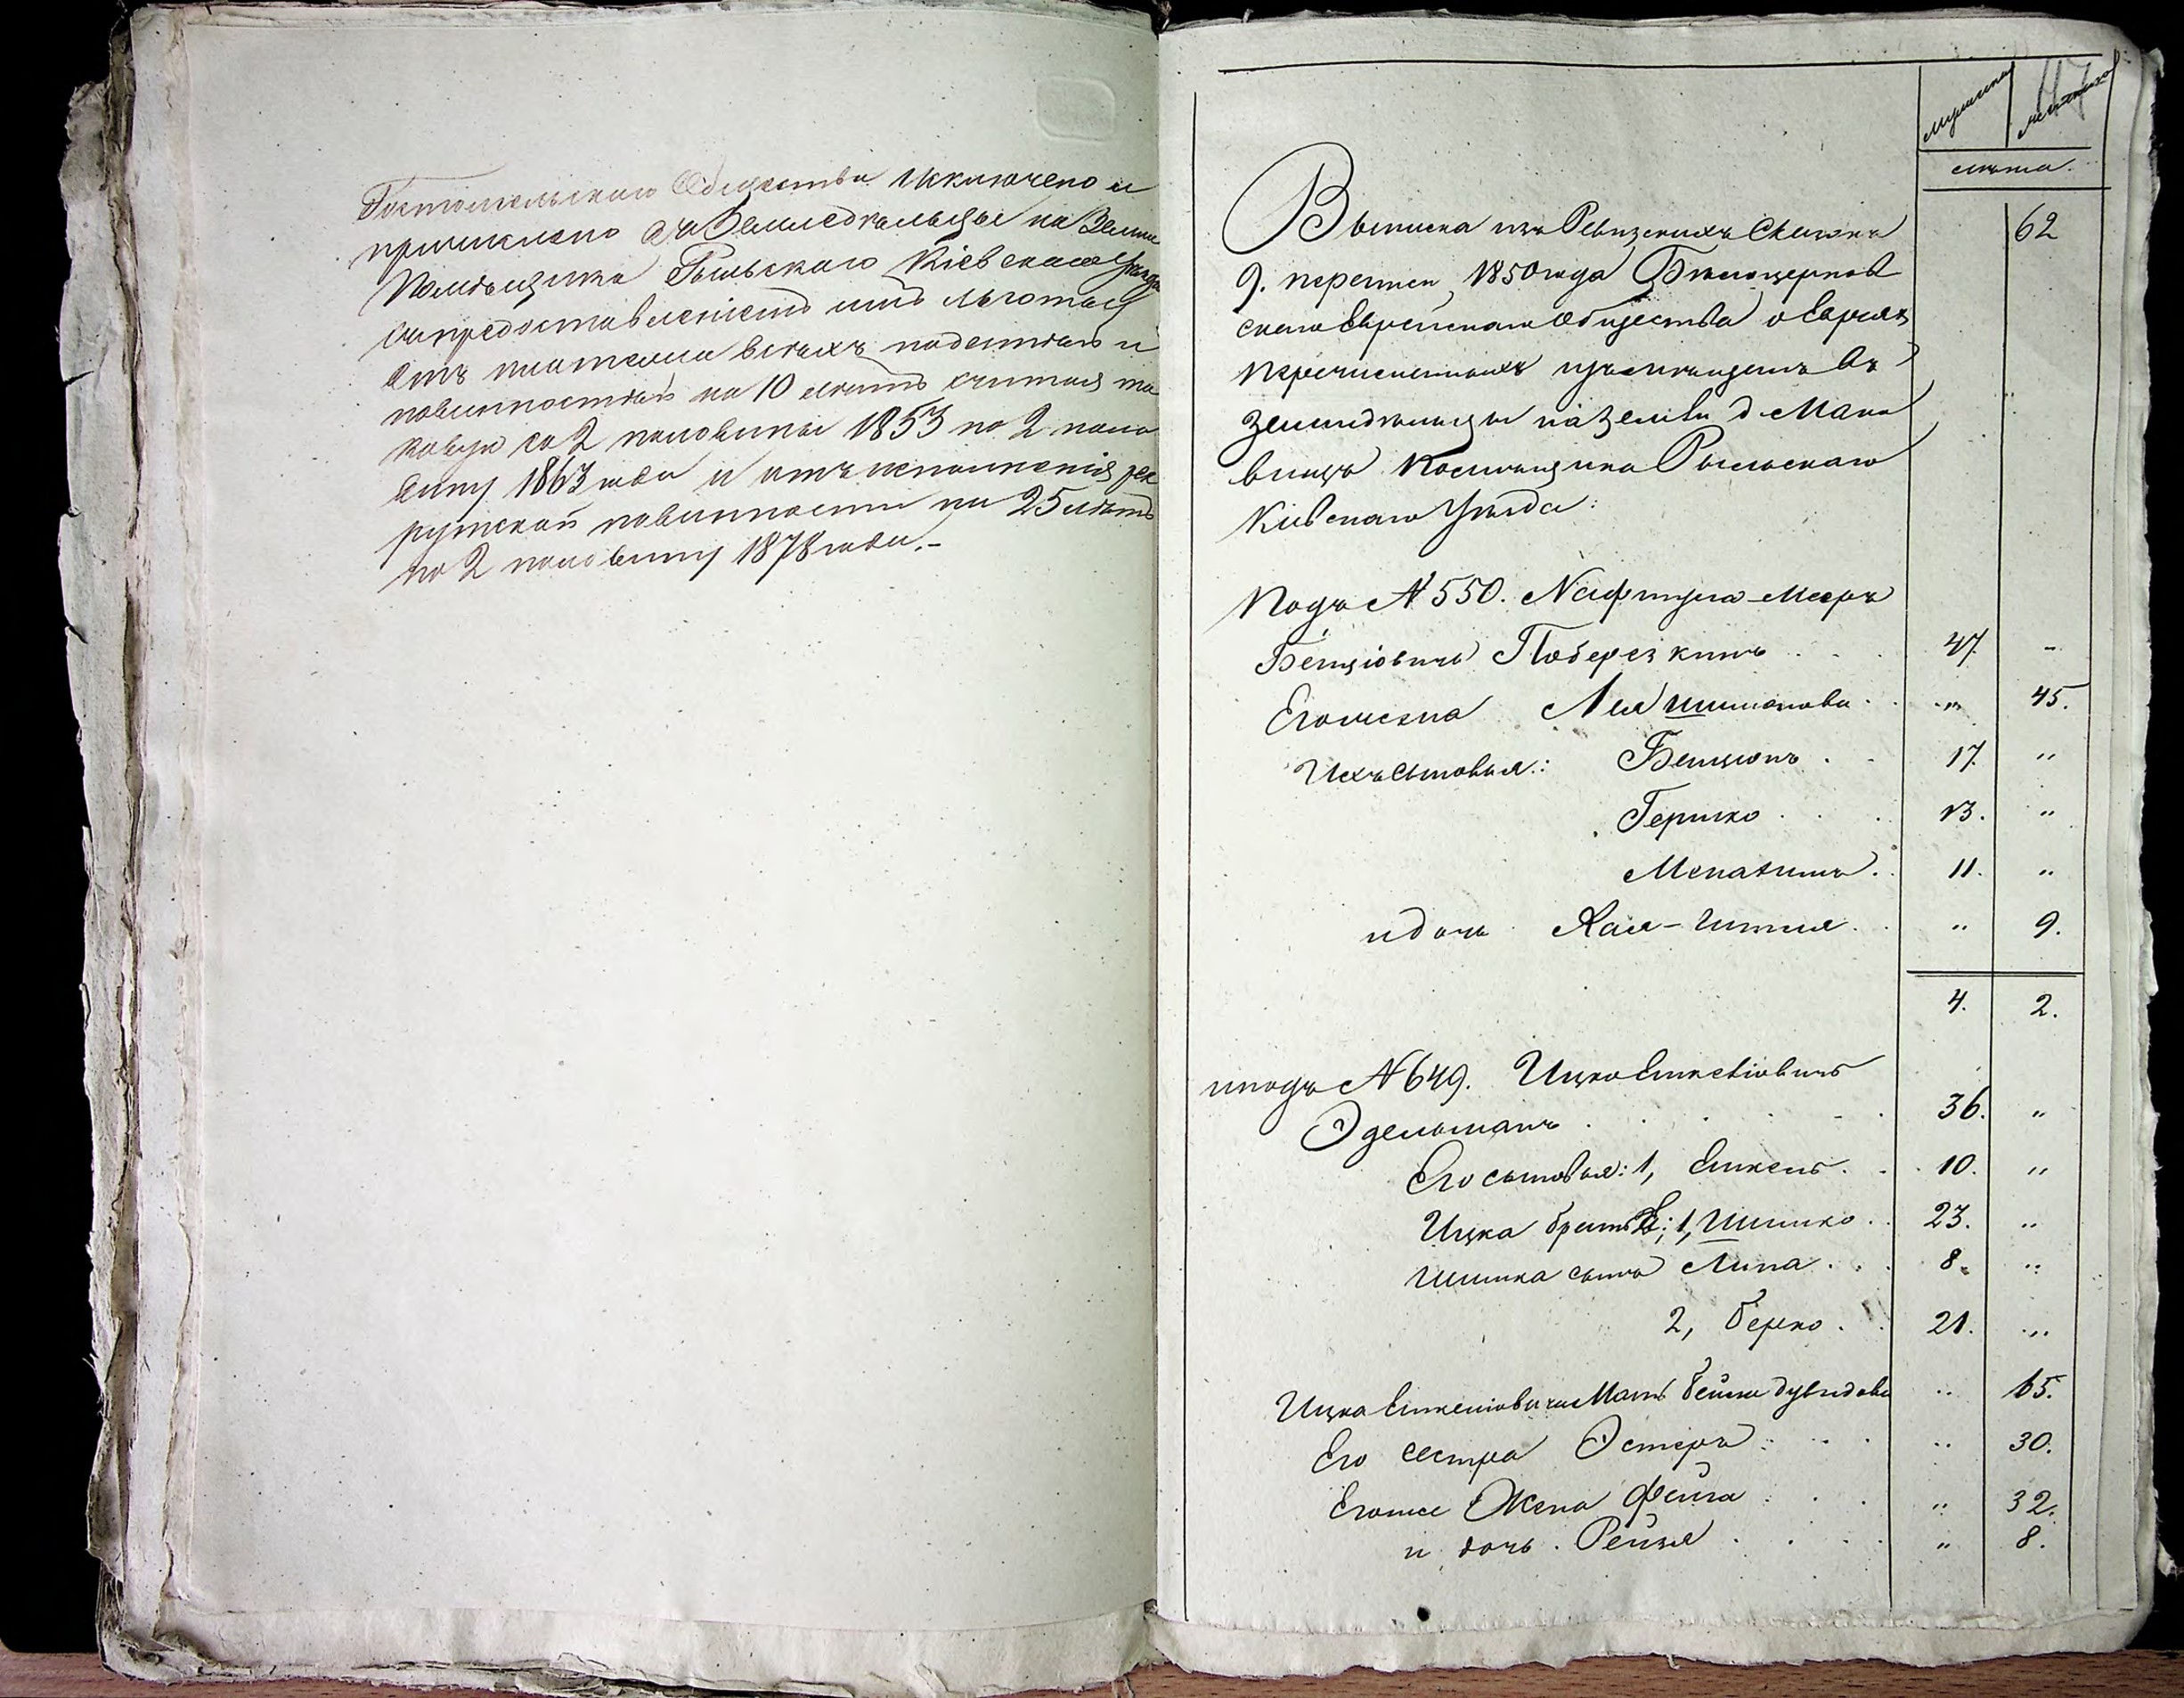 Гостомельскаго Общества исключено и
причислено въ Земледельцы на Земли
Помѣщика Рыльскаго Кіевскаго Уѣзда
съ предоставленіемъ имъ льготы
отъ платежа всѣхъ податей и
повинностей на 10 лѣтъ считая та
ковую со 2 половины 1853 по 2 поло
вину 1863 года и отъ исполненія рек
рутской повинности на 25 лѣтъ
по 2 половину 1878 года.-
мужеска
женска
лѣта.
62
Выписка изъ Ревизскихъ Сказокъ
9. переписи 1850 года Бѣлоцерков
скаго Еврейскаго Общества о Евреяхъ
перечисленныхъ изъ мѣщанъ въ
земледѣльцы на земли д Мака
вищъ Помѣщика Рыльскаго
Кіевскаго Уѣзда:
Подъ № 550. Нафтула-Мееръ
Бенціовичъ Поберезкинъ . . . 47. -
Его жена Лея Шимонова . . " 45.
Ихъ сыновья: Бенціонъ . . 17. "
Гершко . . . 13. "
Менахимъ . . 11. "
и дочь Хая-Ития . . " 9.
4. 2.
и подъ № 649. Ицко Еникевіовичъ
Эдельманъ . . . . 36. "
Его сыновья: 1, Еникель . . 10. "
Ицка братья: 1, Шимко . . 23. "
Шимка сынъ Липа . . . 8. "
2, Берко . . 21. "
Ицка Еникелiовича Мать Бейла Дувидова " 65.
Его сестра Эстеръ . . . " 30.
Его же Жена Фейга . . . " 32.
и дочь . Рейзя . . . . " 8.